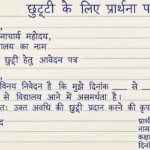 छुट्टी के लिए प्रार्थना प
नाचार्य महोदय,
लय का नाम
छुट्टी हेतु आवेदन पत्र
विनय निवेदन है कि मुझे दिनांक से
से विद्यालय आने में असमर्थता है।
तः उक्त अवधि की छुट्टी प्रदान करने की कृप
प्रार्थी
नाम
कक्षा
दिनां